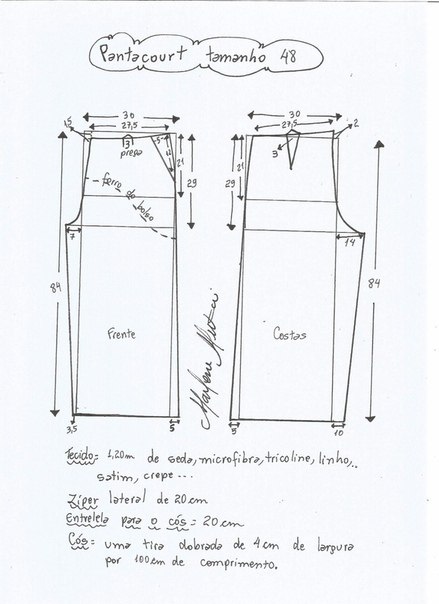 Pantacourt tamanho 48
30
27,5
1,5
3
prega
5
21
29
84
forro do bolso
7
Frente
3,5
5
30
27,5
2
3
21
29
14
84
Costas
5
10
Marlene Mukai
Tecido= 1,20m de seda, microfibra, tricoline, linho,..
satim, crepe ...
Zíper lateral de 20cm
Entretela para o cós= 20cm
Cós= uma tira dobrada de 4cm de largura
por 100cm de comprimento.